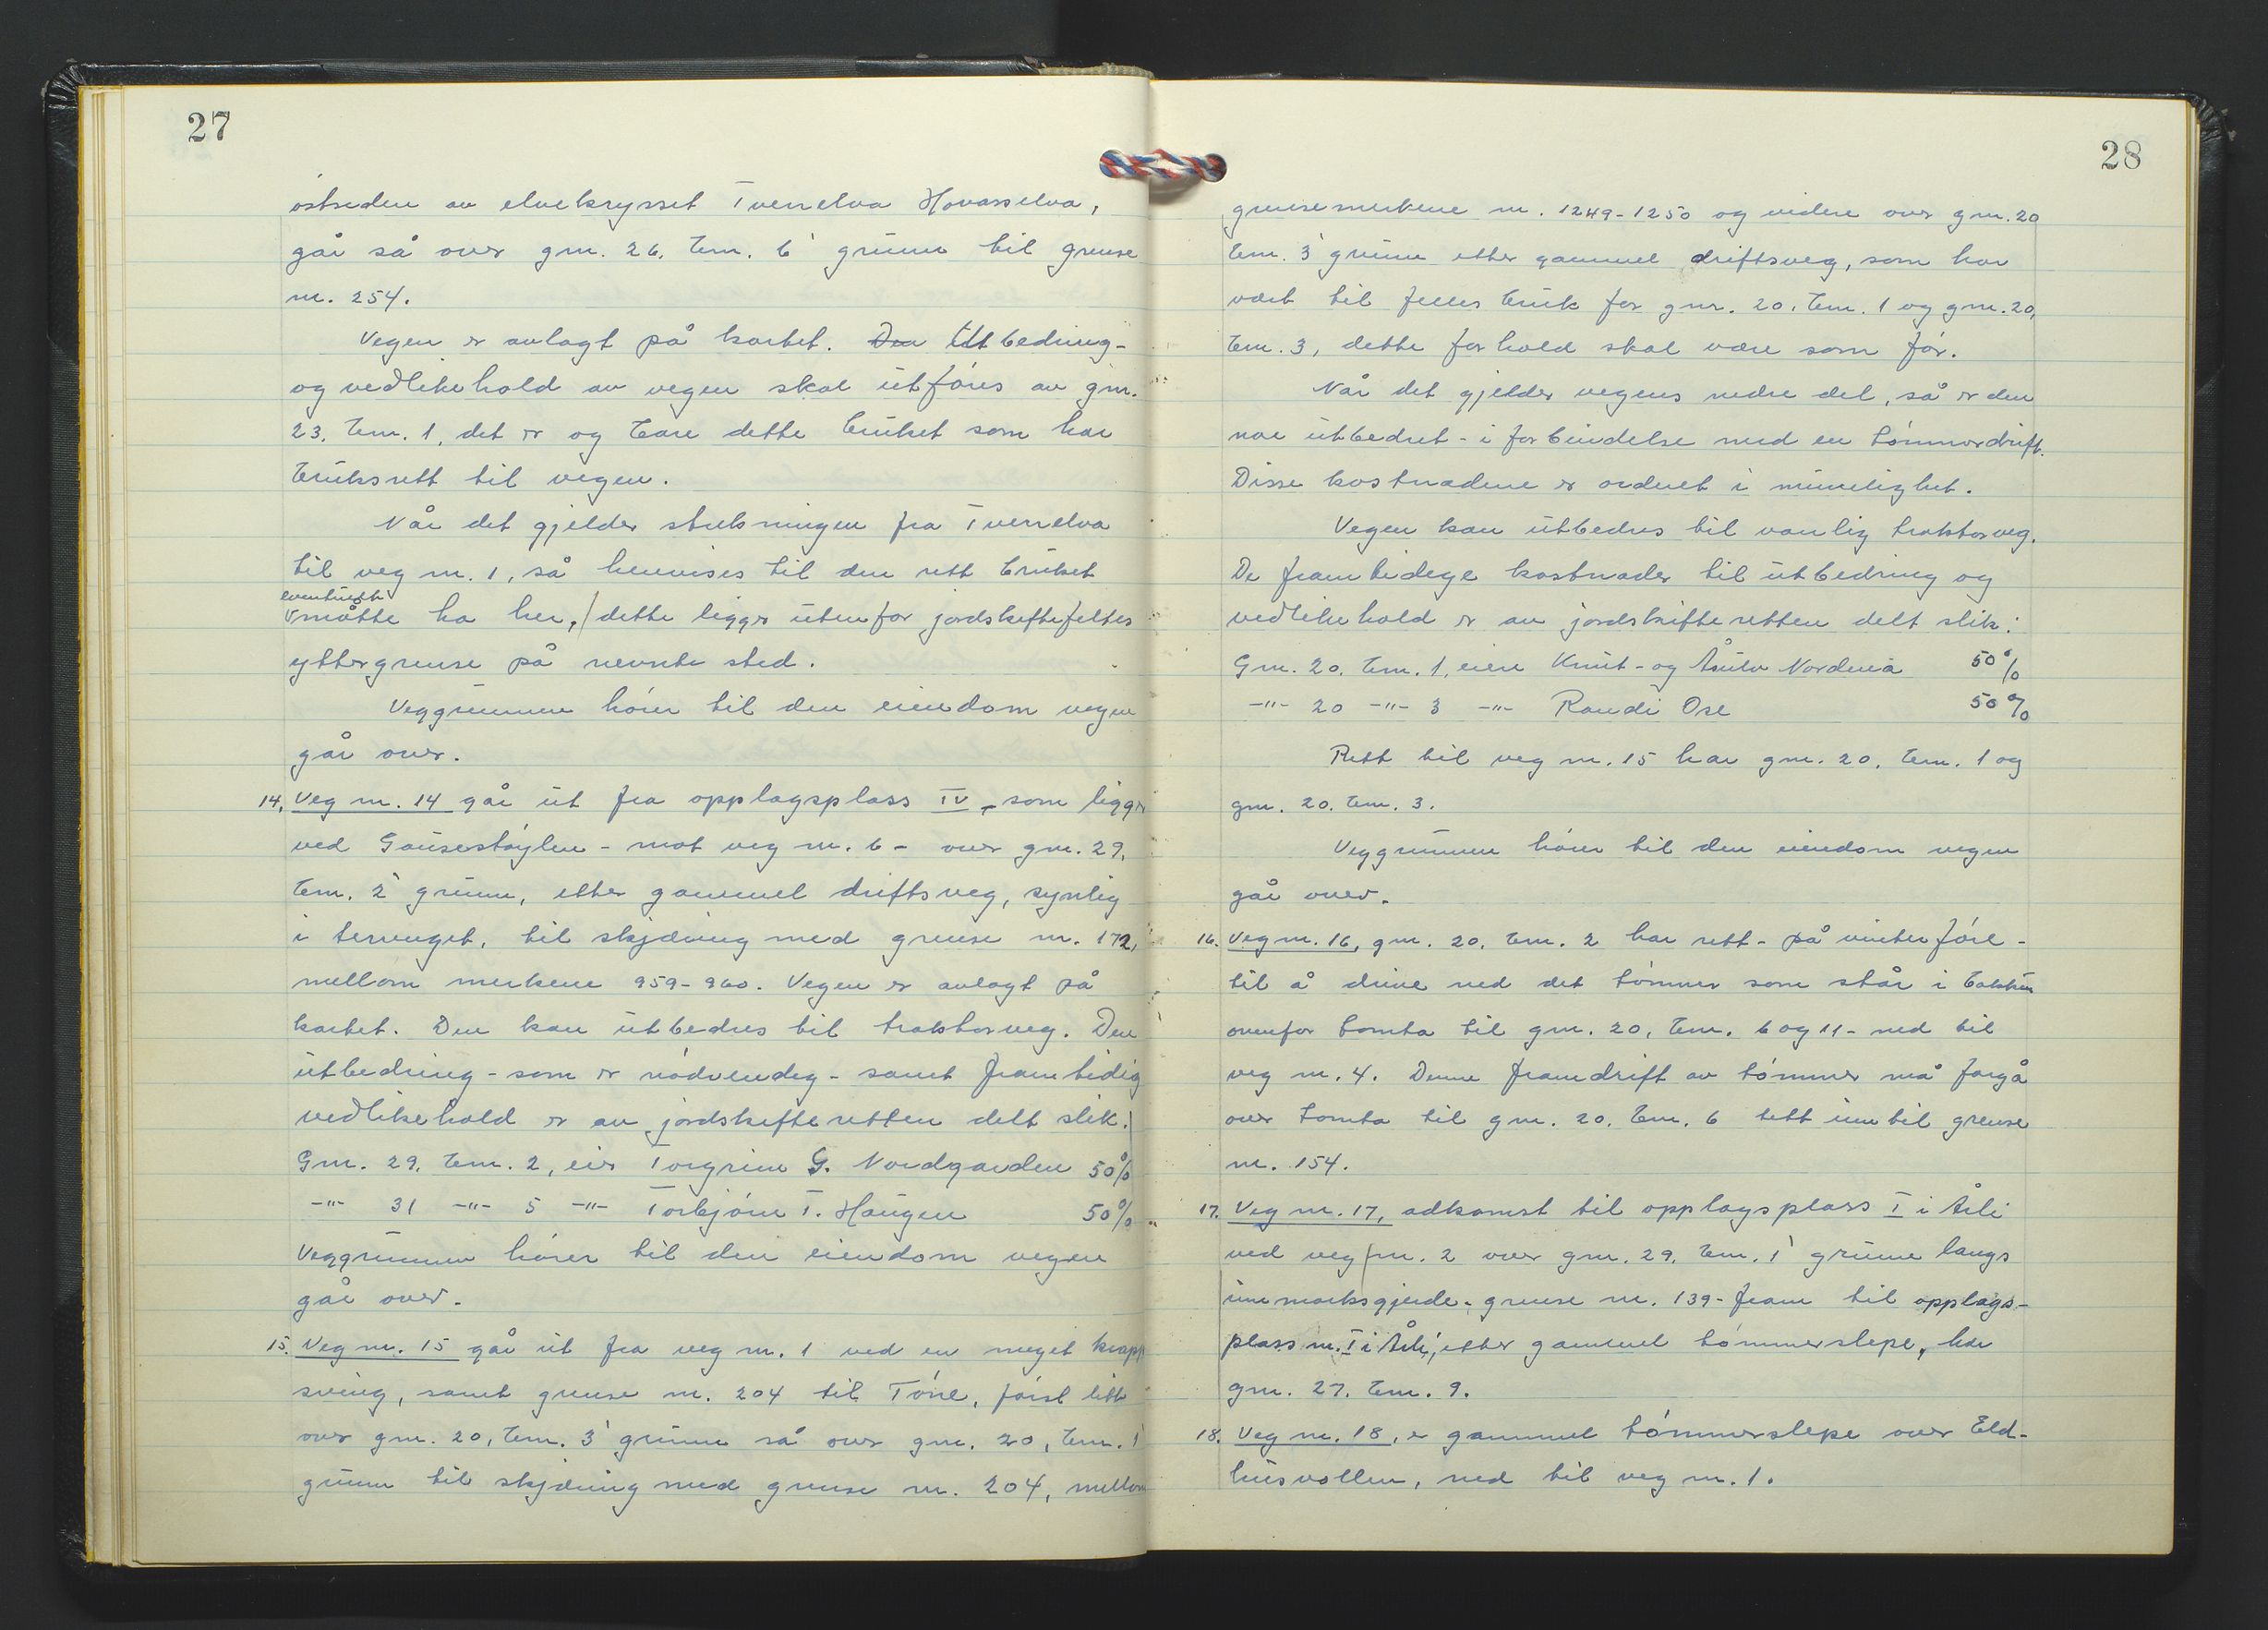 27
østsiden av elvekrysset Tverrelva Hovasselva,
går så over gnr. 26, bnr. 6' grunn til grense
nr. 254.
Vegen er avlagt på kartet. Den Utbedring-
og vedlikehold av vegen skal utføres av gnr.
23, bnr. 1, det er og bare dette bruket som har
bruksrett til vegen.
Når det gjelder strekningen fra Tverrelva
til veg nr. 1, så henvises til den rett bruket
eventuelt
måtte ha her, dette ligger utenfor jordskiftefeltes
yttergrense på nevnte sted.
Veggrunnen hører til den eiendom vegen
går over.
14. Veg nr. 14 går ut fra opplagsplass IV, som ligger
ved Gausestøylen - mot veg nr. 6 - over gnr. 29,
bnr. 2' grunn, etter gammel driftsveg, synlig
i terrenget, til skjæring med grense nr. 172,
mellom merkene 959-960. Vegen er avlagt på
kartet. Den kan utbedres til traktorveg. Den
utbedring - som er nødvendig - samt framtidig
vedlikehold er av jordskifteretten delt slik:
Gnr. 29, bnr. 2, eier Torgrim G. Nordgarden 50%
-"- 31 -"- 5 -"- Torbjørn T. Haugen 50%
Veggrunnen hører til den eiendom vegen
går over.
15. Veg nr. 15 går ut fra veg nr. 1 ved en meget krapp
sving, samt grense nr. 204 til Tore, først litt
over gnr. 20, bnr. 3' grunn så over gnr. 20, bnr. 1'
grunn til skjæring med grense nr. 204, mellom
28
grensemerkene nr. 1249-1250 og videre over gnr. 20
bnr. 3' grunn etter gammel driftsveg, som har
vært til felles bruk for gnr. 20, bnr. 1 og gnr. 20,
bnr. 3, dette forhold skal være som før.
Når det gjelder vegens nedre del, så er den
noe utbedret - i forbindelse med en tømmerdrift.
Disse kostnadene er ordnet i minnelighet.
Vegen kan utbedres til vanlig traktorveg.
De framtidige kostnader til utbedring og
vedlikehold er av jordskifteretten delt slik:
Gnr. 20, bnr. 1, eiere Knut- og Åsulv Nordenå 50%
-"- 20 -"- 3 -"- Randi Ose 50%
Rett til veg nr. 15 har gnr. 20, bnr. 1 og
gnr. 20, bnr. 3.
Veggrunnen hører til den eiendom vegen
går over.
16. Veg nr. 16, gnr. 20, bnr. 2 har rett - på vinterføre -
til å drive ned det tømmer som står i bakken
ovenfor tomta til gnr. 20, bnr. 6 og 11 - ned til
veg nr. 4. Denne framdrift av tømmer må foregå
over tomta til gnr. 20, bnr. 6 tett inn til grense
nr. 154.
17. Veg nr. 17, adkomst til opplagsplass I i Åli
ved veg nr. 2 over gnr. 29, bnr. 1' grunn langs
innmarksgjerde - grense nr. 139 - fram til opplags-
plass nr. I i Åli, etter gammel tømmerslepe, har
gnr. 27, bnr. 9.
18. Veg nr. 18, er gammel tømmerslepe over Eld-
husvollen, ned til veg nr. 1.